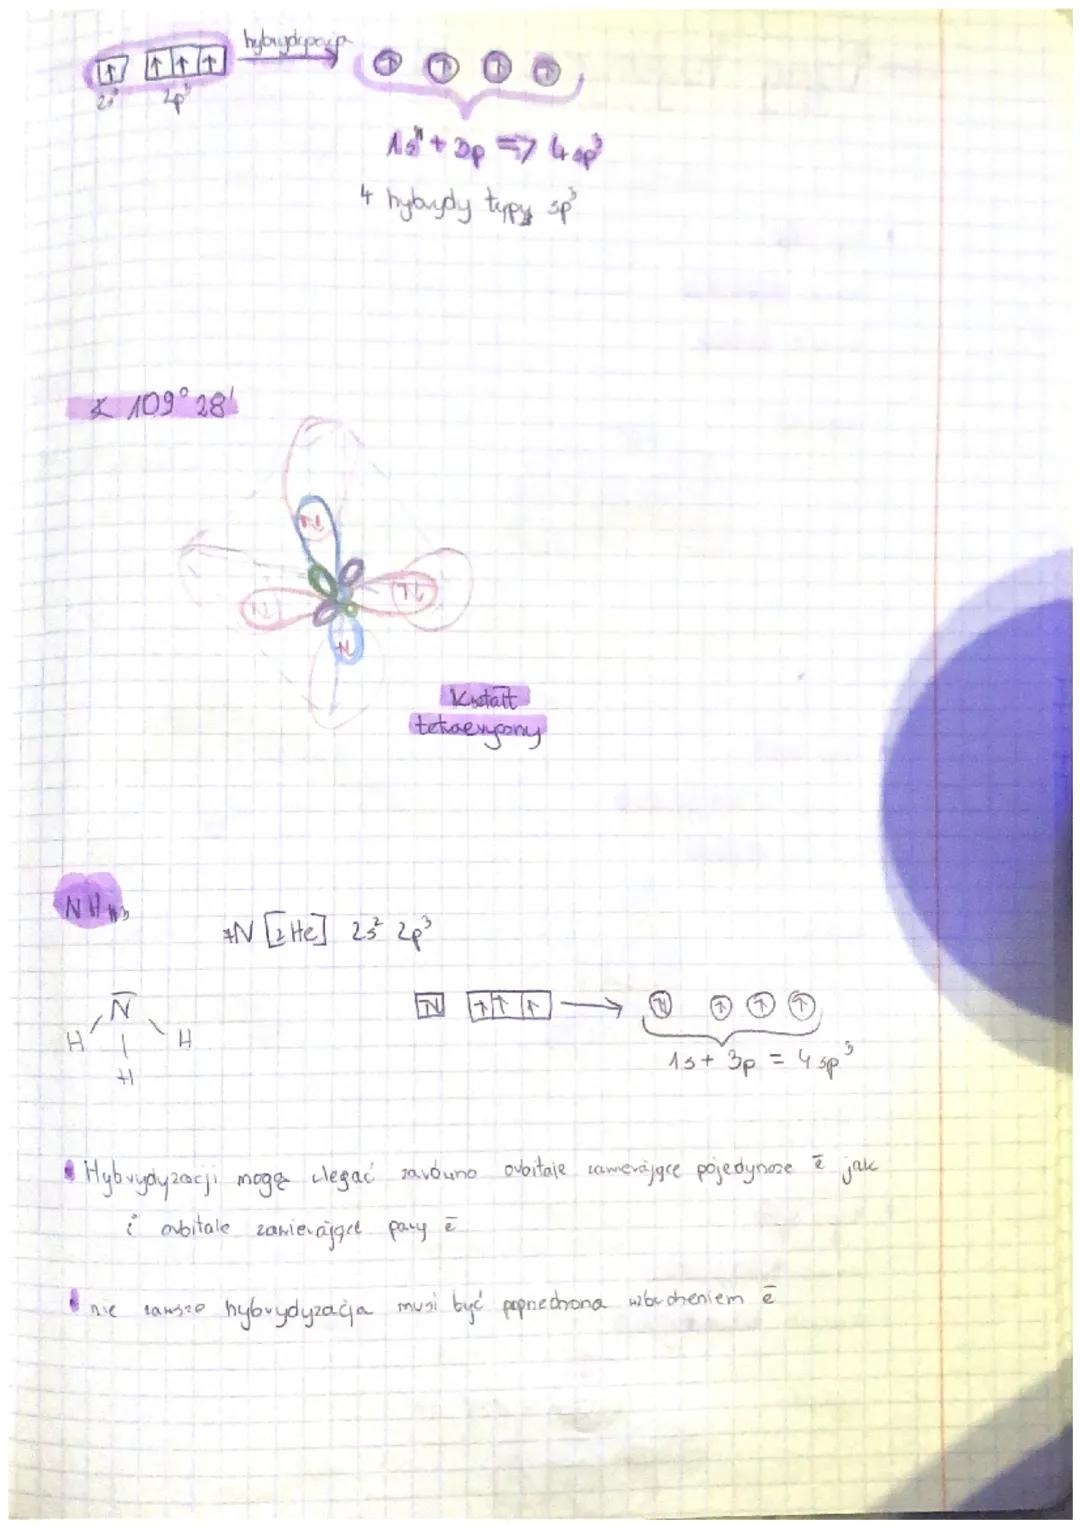 ↑ ↑ ↑ ↑ hybrydyzacja ↑ ↑ ↑ ↑
2s 2p³
1s + 3p => 4 sp³
4 hybrydy typy sp³
∡ 109° 28'
Kształt
tetraedryczny
NH₃
₇N [₂He] 2s² 2p³
N
H H
H
↑↓ ↑ ↑ ↑ → ↑↓ ↑ ↑ ↑
1s + 3p = 4 sp³
Hybrydyzacji mogą ulegać zarówno orbitale zawierające pojedyncze ē jak
i orbitale zawierające pary ē
nie zawsze hybrydyzacja musi być poprzedzona wzbudzeniem ē